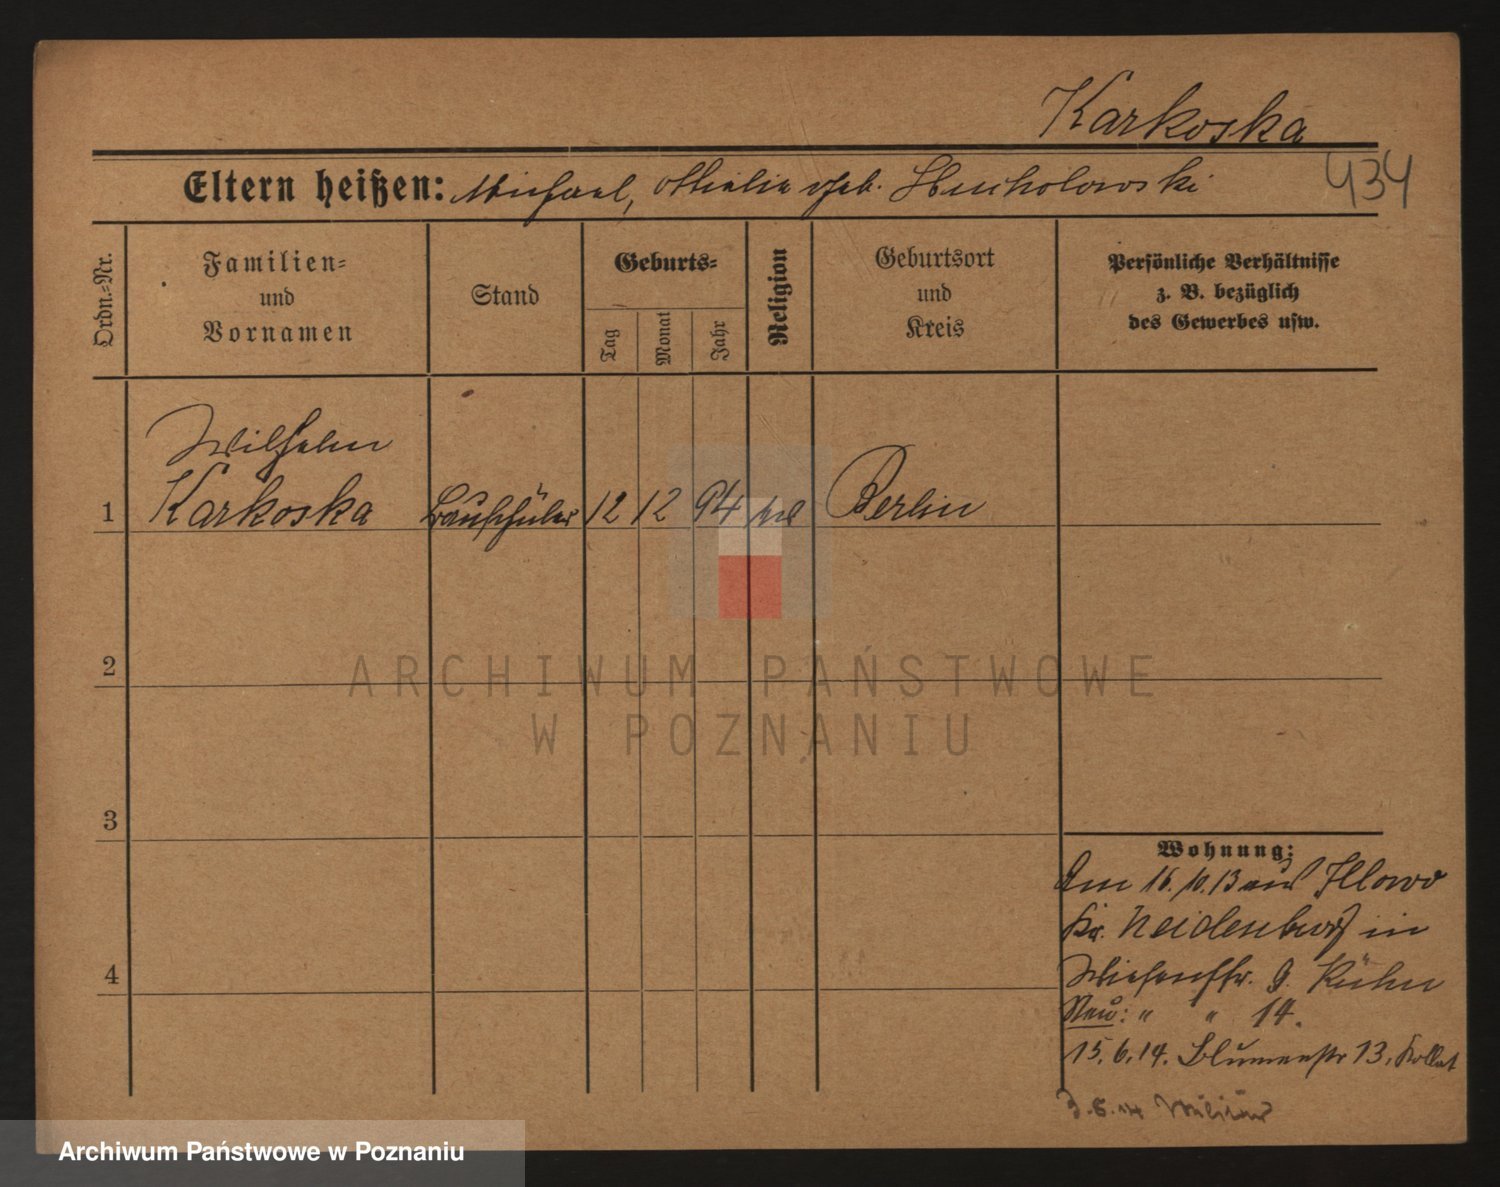 Karkoska
434
Eltern heißen: Michael, Ottilie geb. Sucholowski
Ordn.-Nr.
Familien-
und
Vornamen
Stand
Geburts-
Tag
Monat
Jahr
Religion
Geburtsort
und
Kreis
Persönliche Verhältnisse
z. B. bezüglich
des Gewerbes usw.
Wilhelm
1 Karkoska Bauschüler 12 12 94 Berlin
2
3
4
ARCHIWUM PAŃSTWOWE
W POZNANIU
Wohnung:
Am 16.10.13 aus Illowo
Kr. Neidenburg in
Wiesenstr. 9. Kühn
Neu: " " 14.
15.6.14. Blumenstr 13. Kollat
Militär
Archiwum Państwowe w Poznaniu